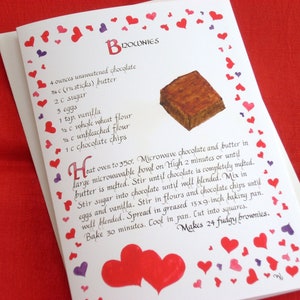 Brownies
4 ounces unsweetened chocolate
3/4 c (1 1/2 sticks) butter
2 c sugar
3 eggs
1 tsp. vanilla
1/2 c whole wheat flour
1/2 c unbleached flour
1 c chocolate chips
Heat oven to 350°. Microwave chocolate and butter in
large microwaveable bowl on High 2 minutes or until
butter is melted. Stir until chocolate is completely melted.
Stir sugar into chocolate until well blended. Mix in
eggs and vanilla. Stir in flours and chocolate chips until
well blended. Spread in greased 13x9 inch baking pan.
Bake 30 minutes. Cool in pan. Cut into squares.
Makes 24 fudgy brownies.